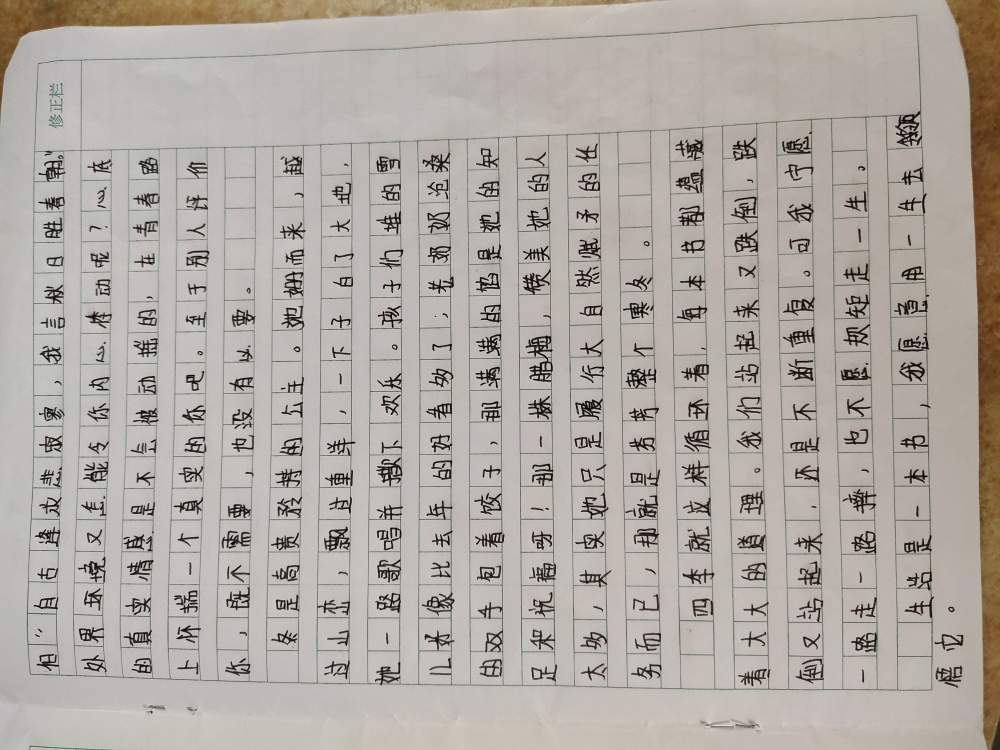 修正栏
但“自古逢秋悲寂寥，我言秋日胜春朝。”
外界环境又怎能令你内心悸动呢？心底
的真实情感是不会被动摇的，在青春路
上怀揣一个真实的你吧。至于别人评价
你，既不需要，也没有必要。
冬是高贵矜持的公主。她姗姗而来，越
过山峦，飘过重洋，一下子白了大地，
她一路歌唱并撒下欢乐。孩子们堆的雪
儿好像比去年的好看多了；老奶奶沧桑
的双手包着饺子，那满满的馅是她的知
足和祝福呀！那一株腊梅，赞美她的人
太多，其实她只是履行大自然赋予的任
务而已，那就是芬芳整个寒冬。
四季就这样循环着，每本书都蕴藏
着大大的道理。我们站起来又跌倒，跌
倒又站起来，还是不断重复。可我宁愿
一路走一路摔，也不愿规矩走一生。
生活是一本书，我愿意用一生去领
悟它。